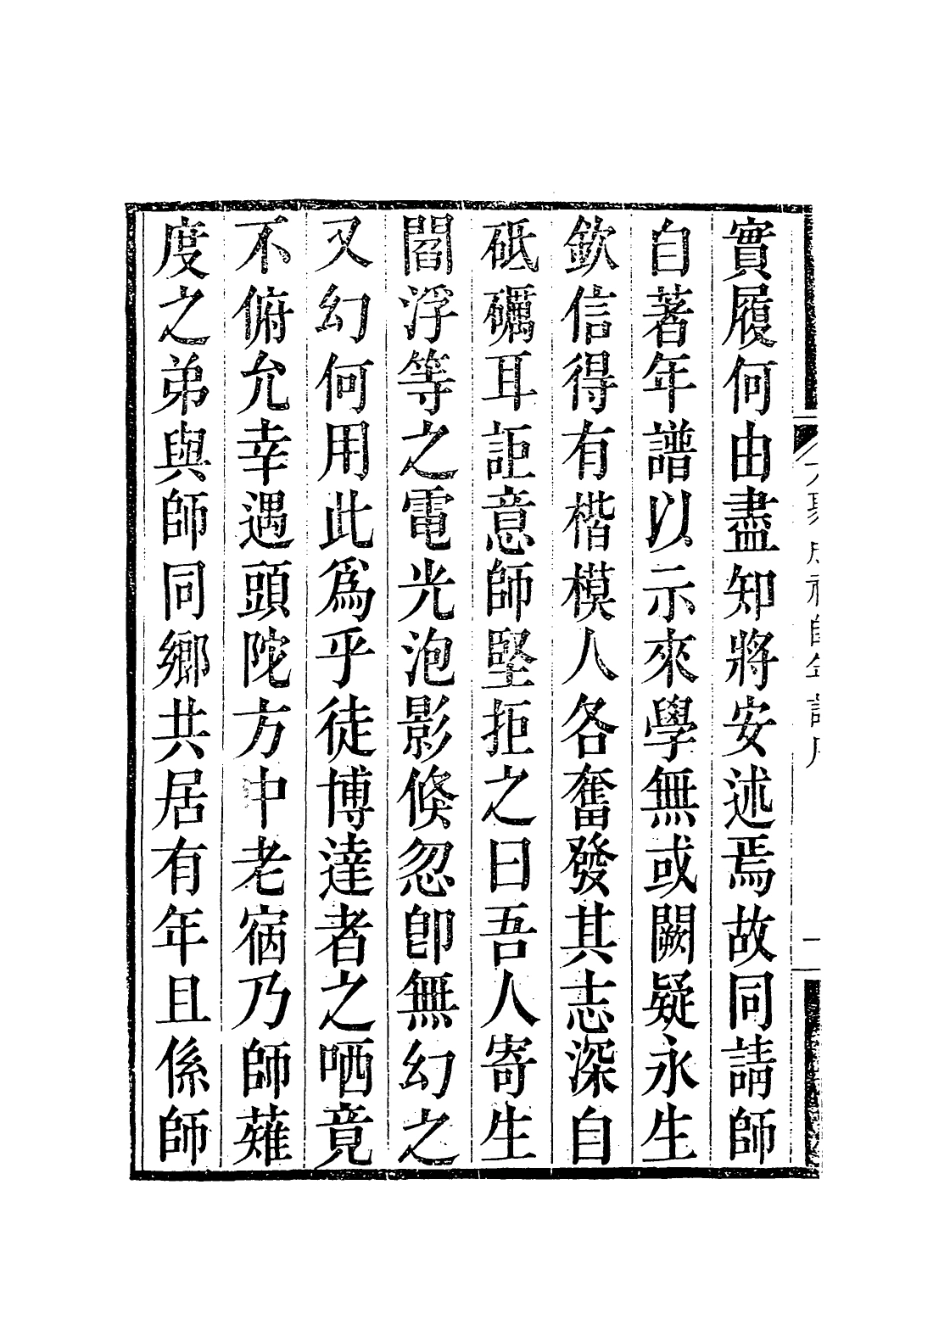 實履何由盡知將安述焉故同請師
自著年譜以示來學無或闕疑永生
欽信得有楷模人各奮發其志深自
砥礪耳詎意師堅拒之曰吾人寄生
閻浮等之電光泡影倏忽卽無幻之
又幻何用此爲乎徒博達者之哂竟
不俯允幸遇頭陀方中老宿乃師薙
度之弟與師同鄉共居有年且係師